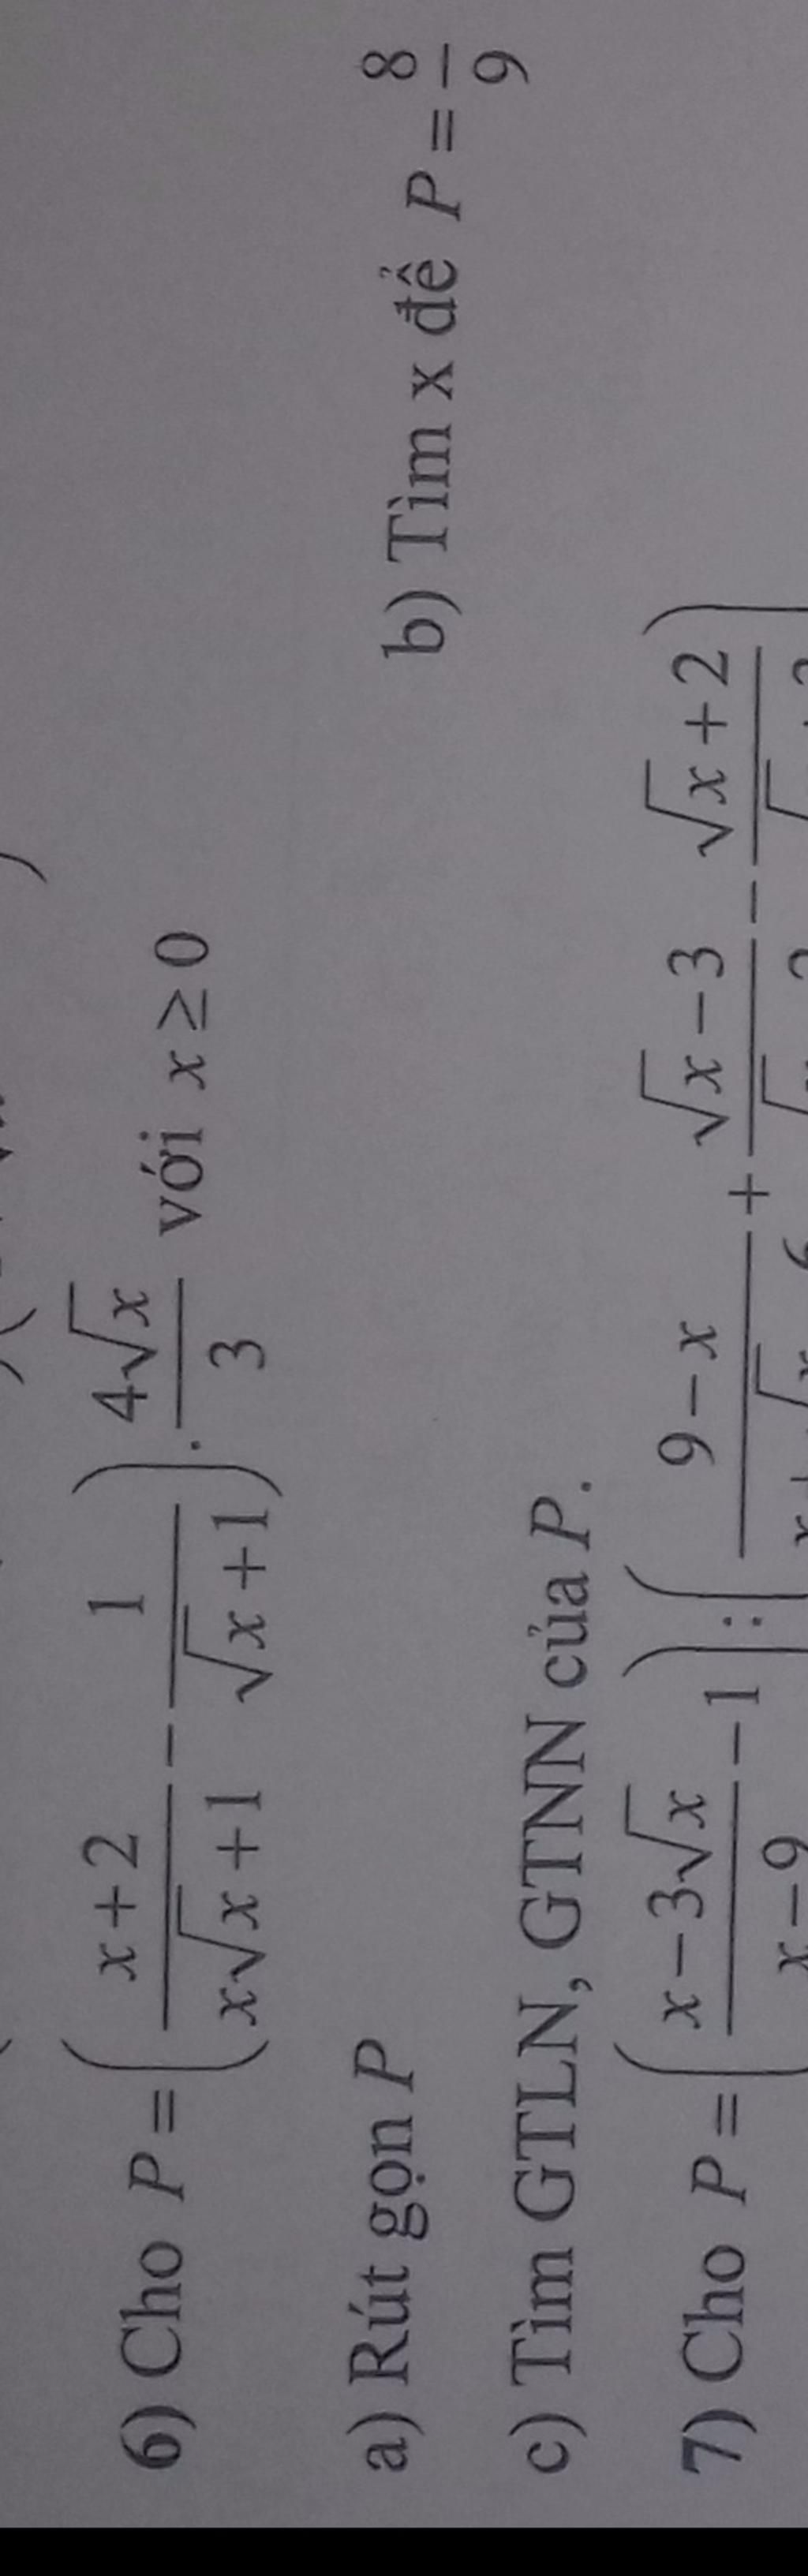 6) Cho P = ( (x+2)/(x√x+1) − 1/(√x+1) ) . (4√x)/3 với x ≥ 0
a) Rút gọn P b) Tìm x để P = 8/9
c) Tìm GTLN, GTNN của P.
7) Cho P = ( (x−3√x)/(x−9) − 1 ) : ( (9−x)/ + (√x−3)/ − (√x+2)/ )